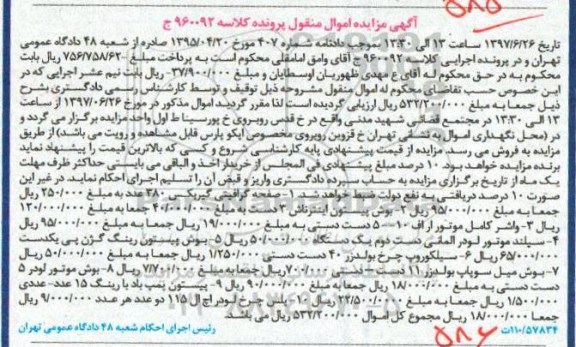 آگهی مزایده اموال منقول پرونده کلاسه ۹۶۰۰۹۲ ج
تاریخ ۱۳۹۷/۶/۲۶ ساعت ۱۳ الی ۱۳:۳۰ بموجب دادنامه شماره ۴۰۷ مورخ ۱۳۹۵/۰۴/۲۰ صادره از شعبه ۴۸ دادگاه عمومی
تهران و در پرونده اجرایی کلاسه ۹۶۰۰۹۲ ج آقای وامق امامقلی محکوم است به پرداخت مبلغ ۷۵۶/۷۵۸/۶۲۰ ریال بابت
محکوم به در حق محکوم له آقای ع مهدی ظهوریان اوسطایان و مبلغ ۳۷/۹۰۰/۰۰۰ ریال بابت نیم عشر اجرایی که در
این خصوص حسب تقاضای محکوم له اموال منقول مشروحه ذیل توقیف و توسط کارشناس رسمی دادگستری بشرح
ذیل جمعا به مبلغ ۵۳۲/۲۰۰/۰۰۰ ریال ارزیابی گردیده است لذا مقرر گردید اموال مذکور در مورخ ۱۳۹۷/۰۶/۲۶ از ساعت
۱۳ الی ۱۳:۳۰ در مجتمع قضائی شهید مدنی واقع در خ قدس روبروی خ پورسینا ط اول واحد مزایده برگزار می گردد و
در (محل نگهداری اموال به نشانی تهران خ قزوین روبروی مخصوص ایکو پارس قابل مشاهده و رویت می باشد) از طریق
مزایده به فروش می رسد. مزایده از قیمت پیشنهادی پایه کارشناسی شروع و کسی که بالاترین قیمت را پیشنهاد نماید
برنده مزایده خواهد بود. ۱۰ درصد مبلغ پیشنهادی فی المجلس از خریدار اخذ و الباقی می بایستی حداکثر ظرف مهلت
یک ماه از تاریخ برگزاری مزایده به حساب سپرده دادگستری واریز و قبض آن را تسلیم اجرای احکام نماید. در غیر این
صورت ۱۰ درصد دریافتی به نفع دولت ضبط خواهد شد. ۱- صفحه گرافیتی گیربکس ۳۸۰ عدد به مبلغ ۲۵۰/۰۰۰ ریال
جمعا به مبلغ ۹۵/۰۰۰/۰۰۰ ریال ۲- بوش پیستون اینترناش ۳ دست به مبلغ ۴۰/۰۰۰/۰۰۰ جمعا به مبلغ ۱۲۰/۰۰۰/۰۰۰
ریال ۳- واشر کامل موتور اراف ۱۰ - ۵ دست دستی به مبلغ ۱۹/۰۰۰/۰۰۰ ریال جمعا به مبلغ ۹۵/۰۰۰/۰۰۰ ریال
۴- سیلند موتور لودر آلمانی دست دوم یک دستگاه ۵۰/۰۰۰/۰۰۰ ریال ۵- بوش پیستون رینگ گژن پی یکدست
۶۵/۰۰۰/۰۰۰ ریال ۶- سیلکوروپ چرخ بولدزر ۴۰ دست دستی ۱/۲۵۰/۰۰۰ ریال جمعا به مبلغ ۵۰/۰۰۰/۰۰۰ ریال
۷- بوش میل سوپاپ بولدزر ۱۱ دست دستی ۷۰۰/۰۰۰ ریال جمعا به مبلغ ۷/۷۰۰/۰۰۰ ریال ۸- بوش موتور لودر ۵
دست دستی به مبلغ ۱۸/۰۰۰/۰۰۰ ریال جمعا به مبلغ ۹۰/۰۰۰/۰۰۰ ریال ۹- پیستون پمپ باد با رینگ ۱۵ عدد - عددی
۱/۵۰۰/۰۰۰ ریال جمعا به مبلغ ۲۲/۵۰۰/۰۰۰ ریال چرخ لودر اچ ال ۱۱۵ دو عدد هر عدد ۹/۰۰۰/۰۰۰ ریال
جمعا ۱۸/۰۰۰/۰۰۰ ریال مجموع کل اموال ۵۳۲/۲۰۰/۰۰۰ ریال می باشد
۱۱۰/۵۷۸۳۴ت رئیس اجرای احکام شعبه ۴۸ دادگاه عمومی تهران